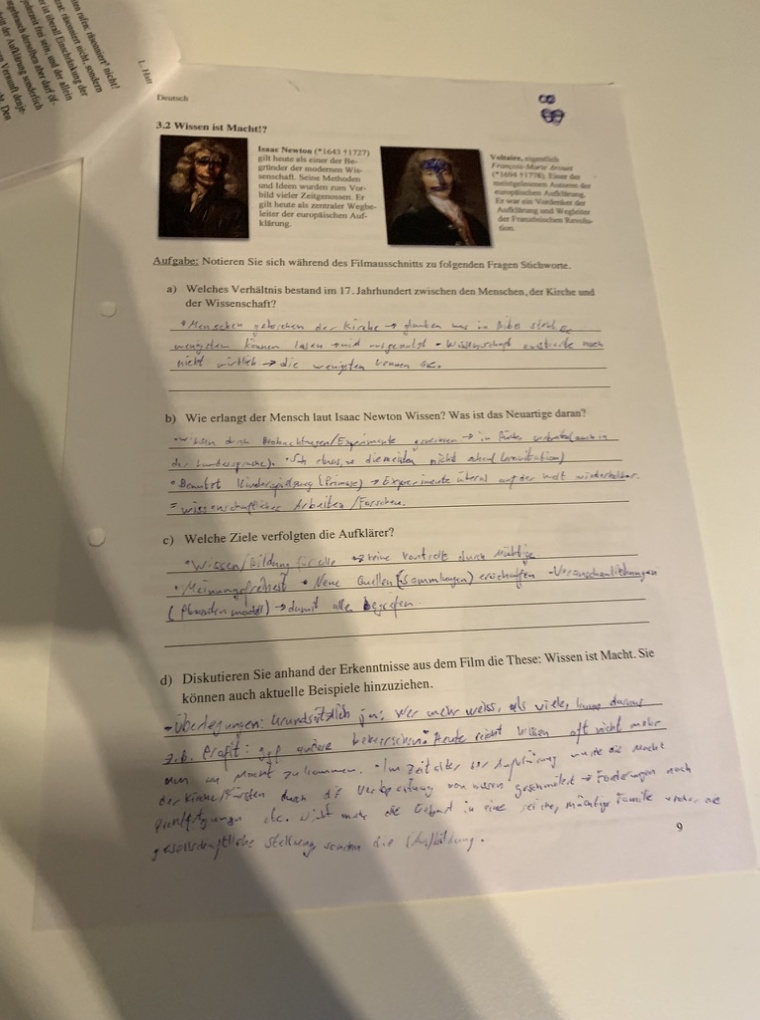 ten rufen: räsonniert nicht!
räsonniert nicht, sondern
ist überall Einschränkung der
jederzeit frei sein, und der allein
derselben aber darf öf-
der Aufklärung sonderlich
Vernunft
Den
Deutsch
3.2 Wissen ist Macht!?
Isaac Newton (*1643 †1727)
gilt heute als einer der Be-
gründer der modernen Wis-
senschaft. Seine Methoden
und Ideen wurden zum Vor-
bild vieler Zeitgenossen. Er
gilt heute als zentraler Wegbe-
reiter der europäischen Auf-
klärung.
Voltaire, eigentlich
François-Marie Arouet
(*1694 †1778). Einer der
meistgelesenen Autoren der
europäischen Aufklärung.
Er war ein Vordenker der
Aufklärung und Wegleiter
der Französischen Revolu-
tion.
Aufgabe: Notieren Sie sich während des Filmausschnitts zu folgenden Fragen Stichworte.
a) Welches Verhältnis bestand im 17. Jahrhundert zwischen den Menschen, der Kirche und
der Wissenschaft?
• Menschen gehorchen der Kirche → glauben was in Bibel
wenigsten können lesen → wird ausgenutzt • Wissenschaft existierte noch
nicht wirklich → die wenigsten
b) Wie erlangt der Mensch laut Isaac Newton Wissen? Was ist das Neuartige daran?
• Wissen durch Beobachtungen/Experimente gewinnen → in
der Landessprache). die meisten nicht (Gravitation)
• Benutzt (Prisma) → Experimente überal auf der Welt wiederholbar.
= wissenschaftliches Arbeiten/Forschen.
c) Welche Ziele verfolgten die Aufklärer?
• Wissen/Bildung für alle → keine Kontrolle durch Mächtige
• Meinungsfreiheit • Neue Quellen (Sammlungen) erschaffen - Veranschaulichungen
→ damit alle begreifen
d) Diskutieren Sie anhand der Erkenntnisse aus dem Film die These: Wissen ist Macht. Sie
können auch aktuelle Beispiele hinzuziehen.
- Überlegungen: Grundsätzlich ja: Wer mehr weiss, als viele, kann daraus
z.B. Profit: ggf andere beherrschen. Heute reicht Wissen oft nicht mehr
um an Macht zu kommen. • Im Zeitalter der Aufklärung wurde die Macht
der Kirche/Fürsten durch die Verbreitung von Wissen geschmälert → Forderungen nach
etc. Nicht mehr die Geburt in eine reiche, mächtige Familie die
gesellschaftliche Stellung sondern die (Aus)bildung.
9